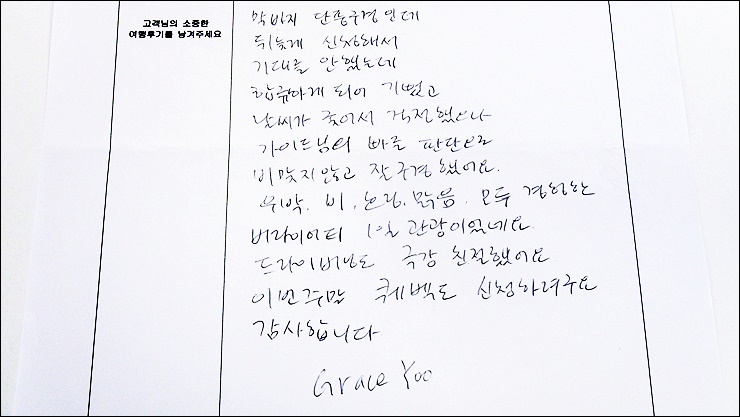 고객님의 소중한
여행후기를 남겨주세요
막바지 단풍구경인데
뒤늦게 신청해서
기대를 안했는데
합류하게 되어 기뻤고
날씨가 궂어서 걱정했으나
가이드님의 빠른 판단으로
비맞지않고 잘 구경했어요.
우박. 비. 눈, 맑음. 모두 경험한
버라이어티 1일 관광이었네요.
드라이버님도 극강 친절했어요
이번주말 퀘벡도 신청하려구요
감사합니다
Grace Yoo